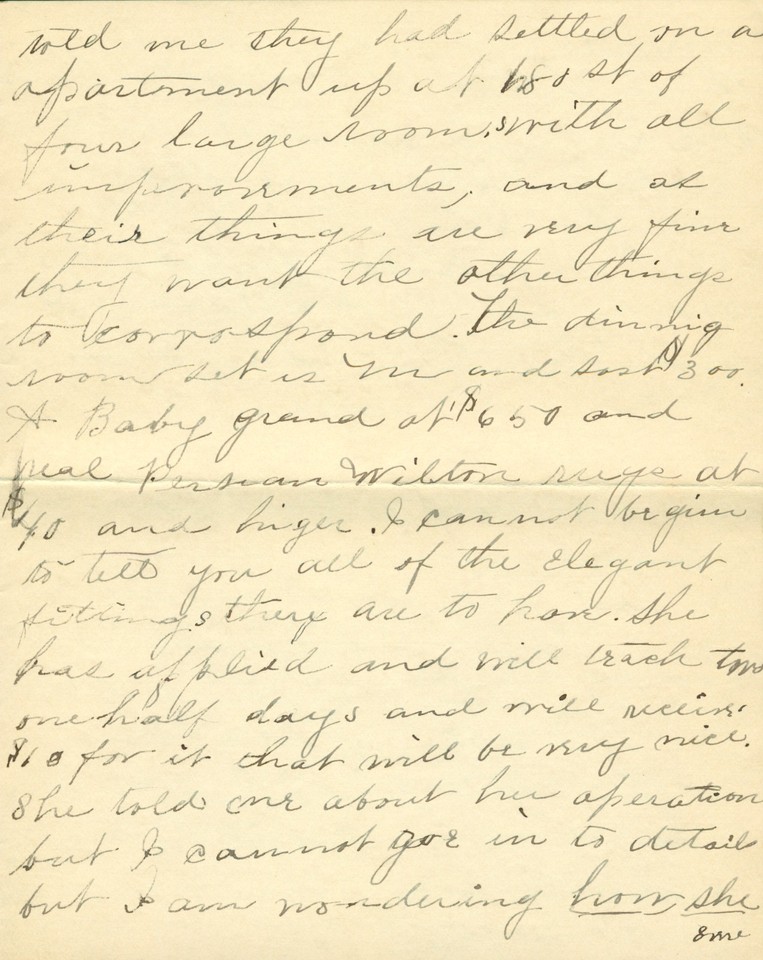 told me they had settled on a
apartment up at 180 st of
four large rooms, with all
improvements, and as
their things are very fine
they want the other things
to corrospond. The dinnig
room set is in and cost $300.
A Baby grand at $650 and
real Persian Wilton rugs at
$40 and higer. I cannot begin
to tell you all of the elegant
fittings they are to have. She
has applied and will teach two
one half days and will receive
$10 for it that will be very nice.
She told me about her operation
but I cannot goe in to detail
but I am wondering how she